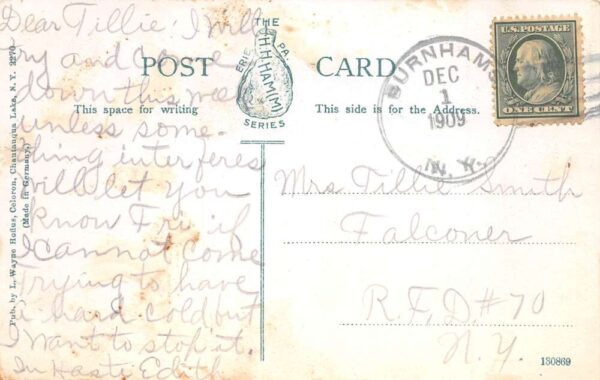 Dear Tillie: I will
try and come
down this week
unless some-
thing interferes
will let you
know Fri. if
I cannot come
Trying to have
a hard cold but
I want to stop it.
In Haste Edith
Pub. by L. Wayne Hodus, Celoron, Chautauqua Lake, N. Y. 3270
(Made in Germany.)
POST CARD
This space for writing
This side is for the Address.
THE
H.H. HAMM
ERIE PA
SERIES
BURNHAMS
DEC
1
1909
N. Y.
U.S. POSTAGE
ONE CENT
Mrs Tillie Smith
Falconer
R.F.D # 70
N. Y.
130869